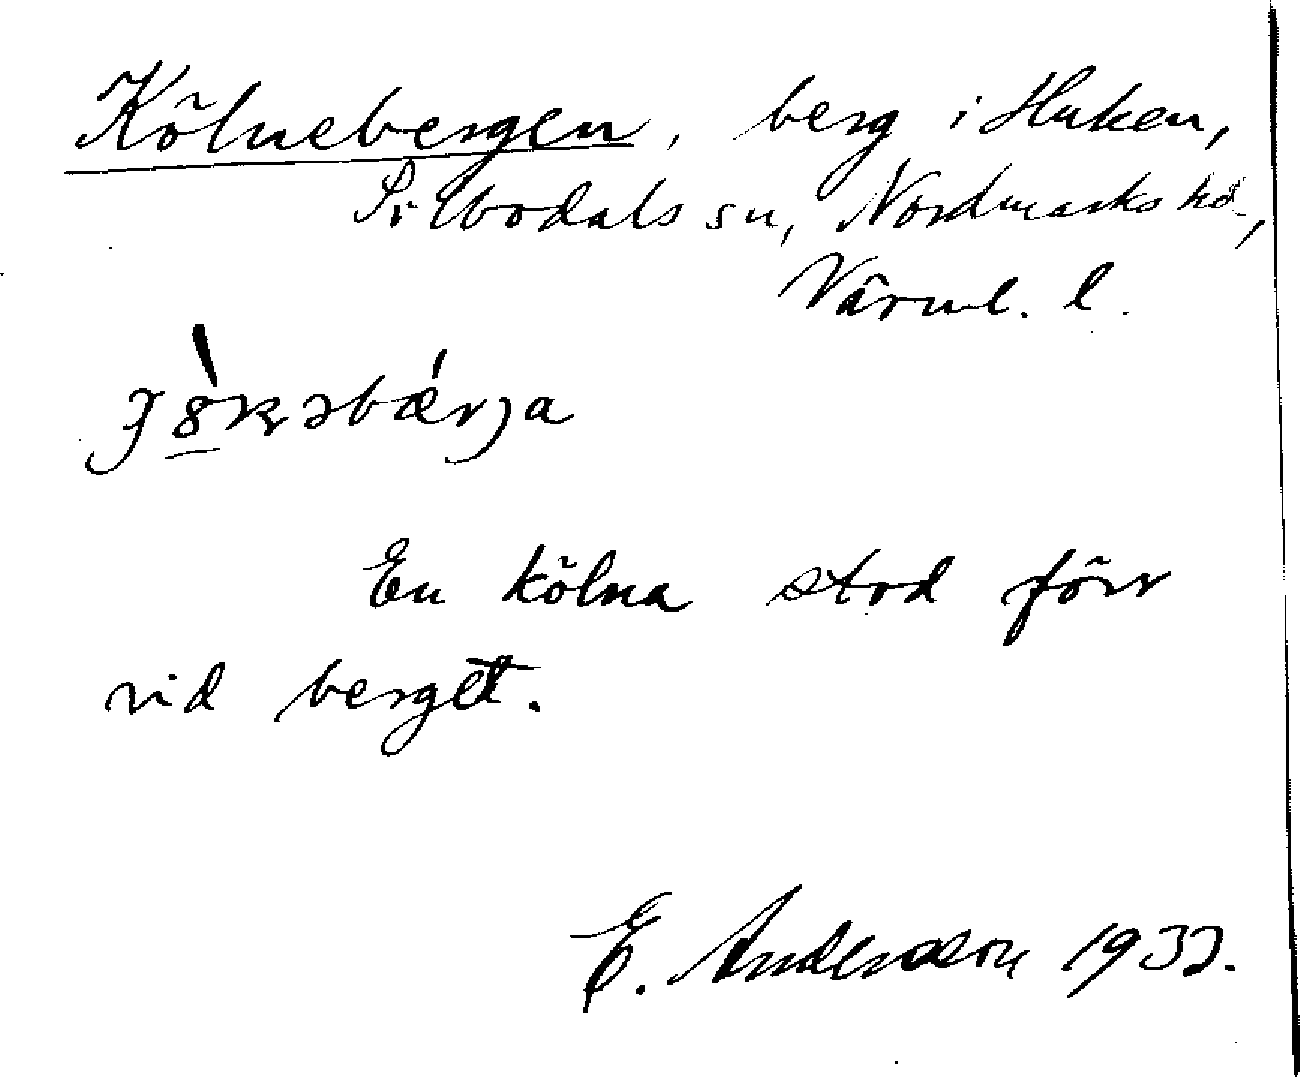 Kölnebergen, berg i Huken,
Silbodals sn, Nordmarks hd,
Värml. l.
En kölna stod förr
vid berget.
E. Andersson 1932.